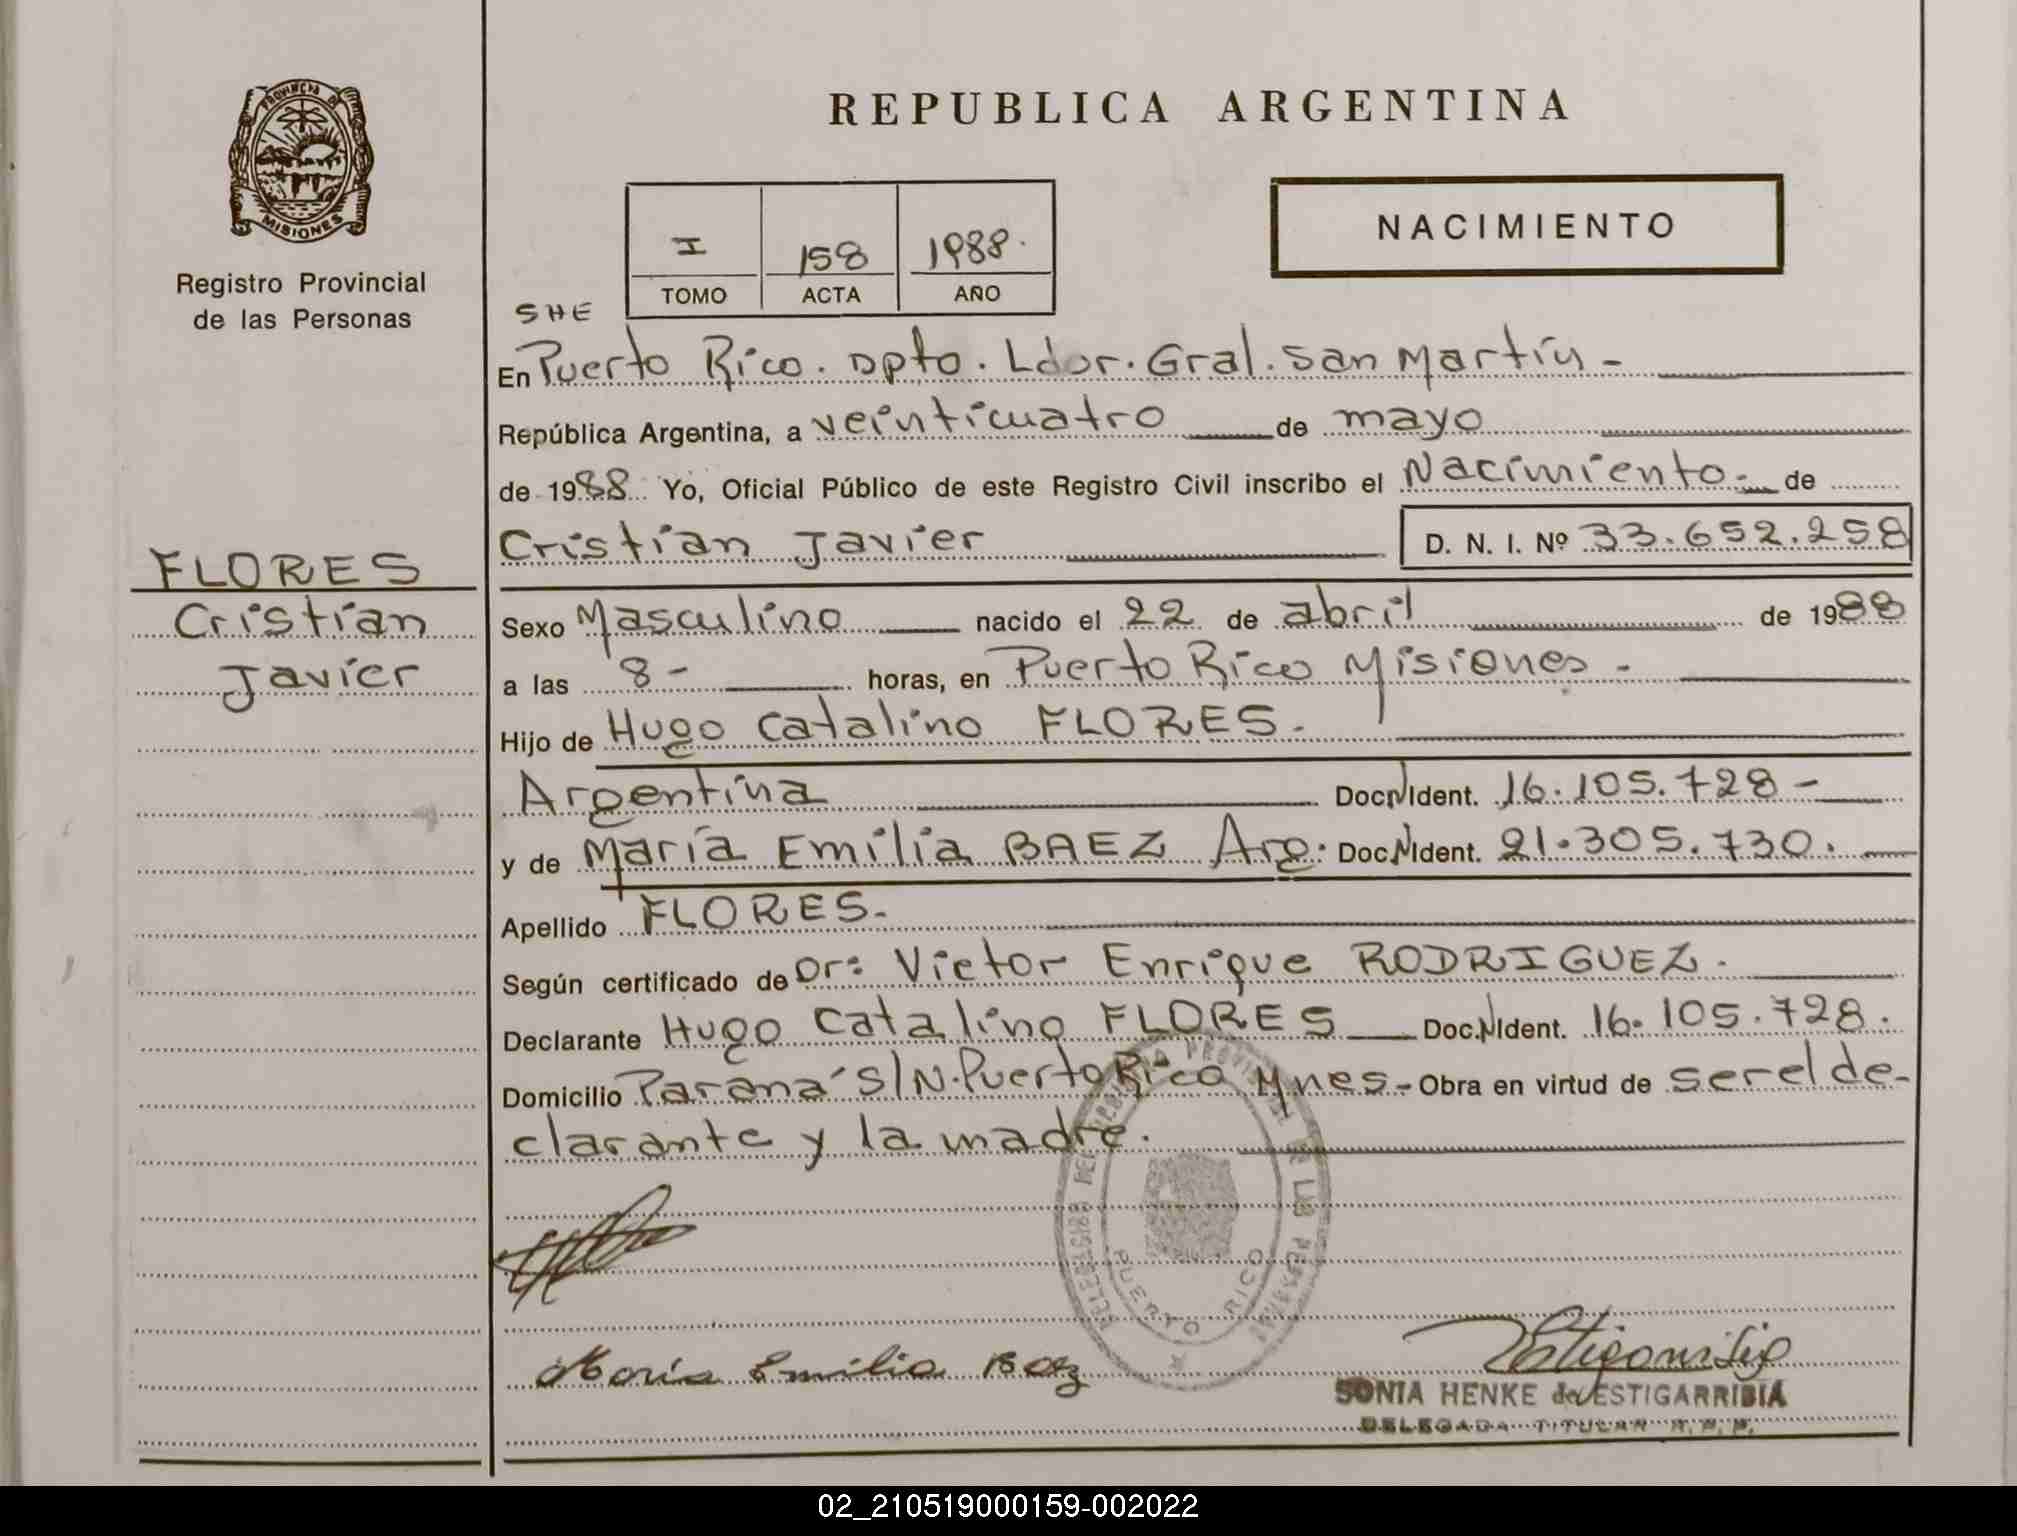 PROVINCIA DE
MISIONES
Registro Provincial
de las Personas
REPUBLICA ARGENTINA
NACIMIENTO
I 158 1988.
TOMO ACTA AÑO
SHE
En Puerto Rico. Dpto. Ldor. Gral. San Martín -
República Argentina, a veinticuatro de mayo
de 1988 Yo, Oficial Público de este Registro Civil inscribo el Nacimiento - de
Cristian Javier D. N. I. Nº 33.652.258
FLORES
Cristian
Javier
Sexo Masculino nacido el 22 de abril de 1988
a las 8 - horas, en Puerto Rico Misiones -
Hijo de Hugo Catalino FLORES.
Argentina Doc. N Ident. 16.105.728 -
y de María Emilia BAEZ Arg. Doc. N Ident. 21.305.730.
Apellido FLORES.-
Según certificado de Dr: Victor Enrique RODRIGUEZ.
Declarante Hugo Catalino FLORES Doc. N Ident. 16.105.728.
Domicilio Paraná S/N. Puerto Rico Mnes.- Obra en virtud de ser el de-
clarante y la madre.
PUERTO RICO
María Emilia Baez
SONIA HENKE de ESTIGARRIBIA
DELEGADA TITULAR R.P.P.
02_210519000159-002022